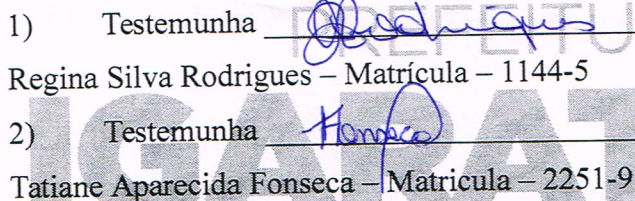 PREFEITU
1) Testemunha Rodrigues
Regina Silva Rodrigues – Matrícula – 1144-5
IGARAT
2) Testemunha Fonseca
Tatiane Aparecida Fonseca – Matricula – 2251-9